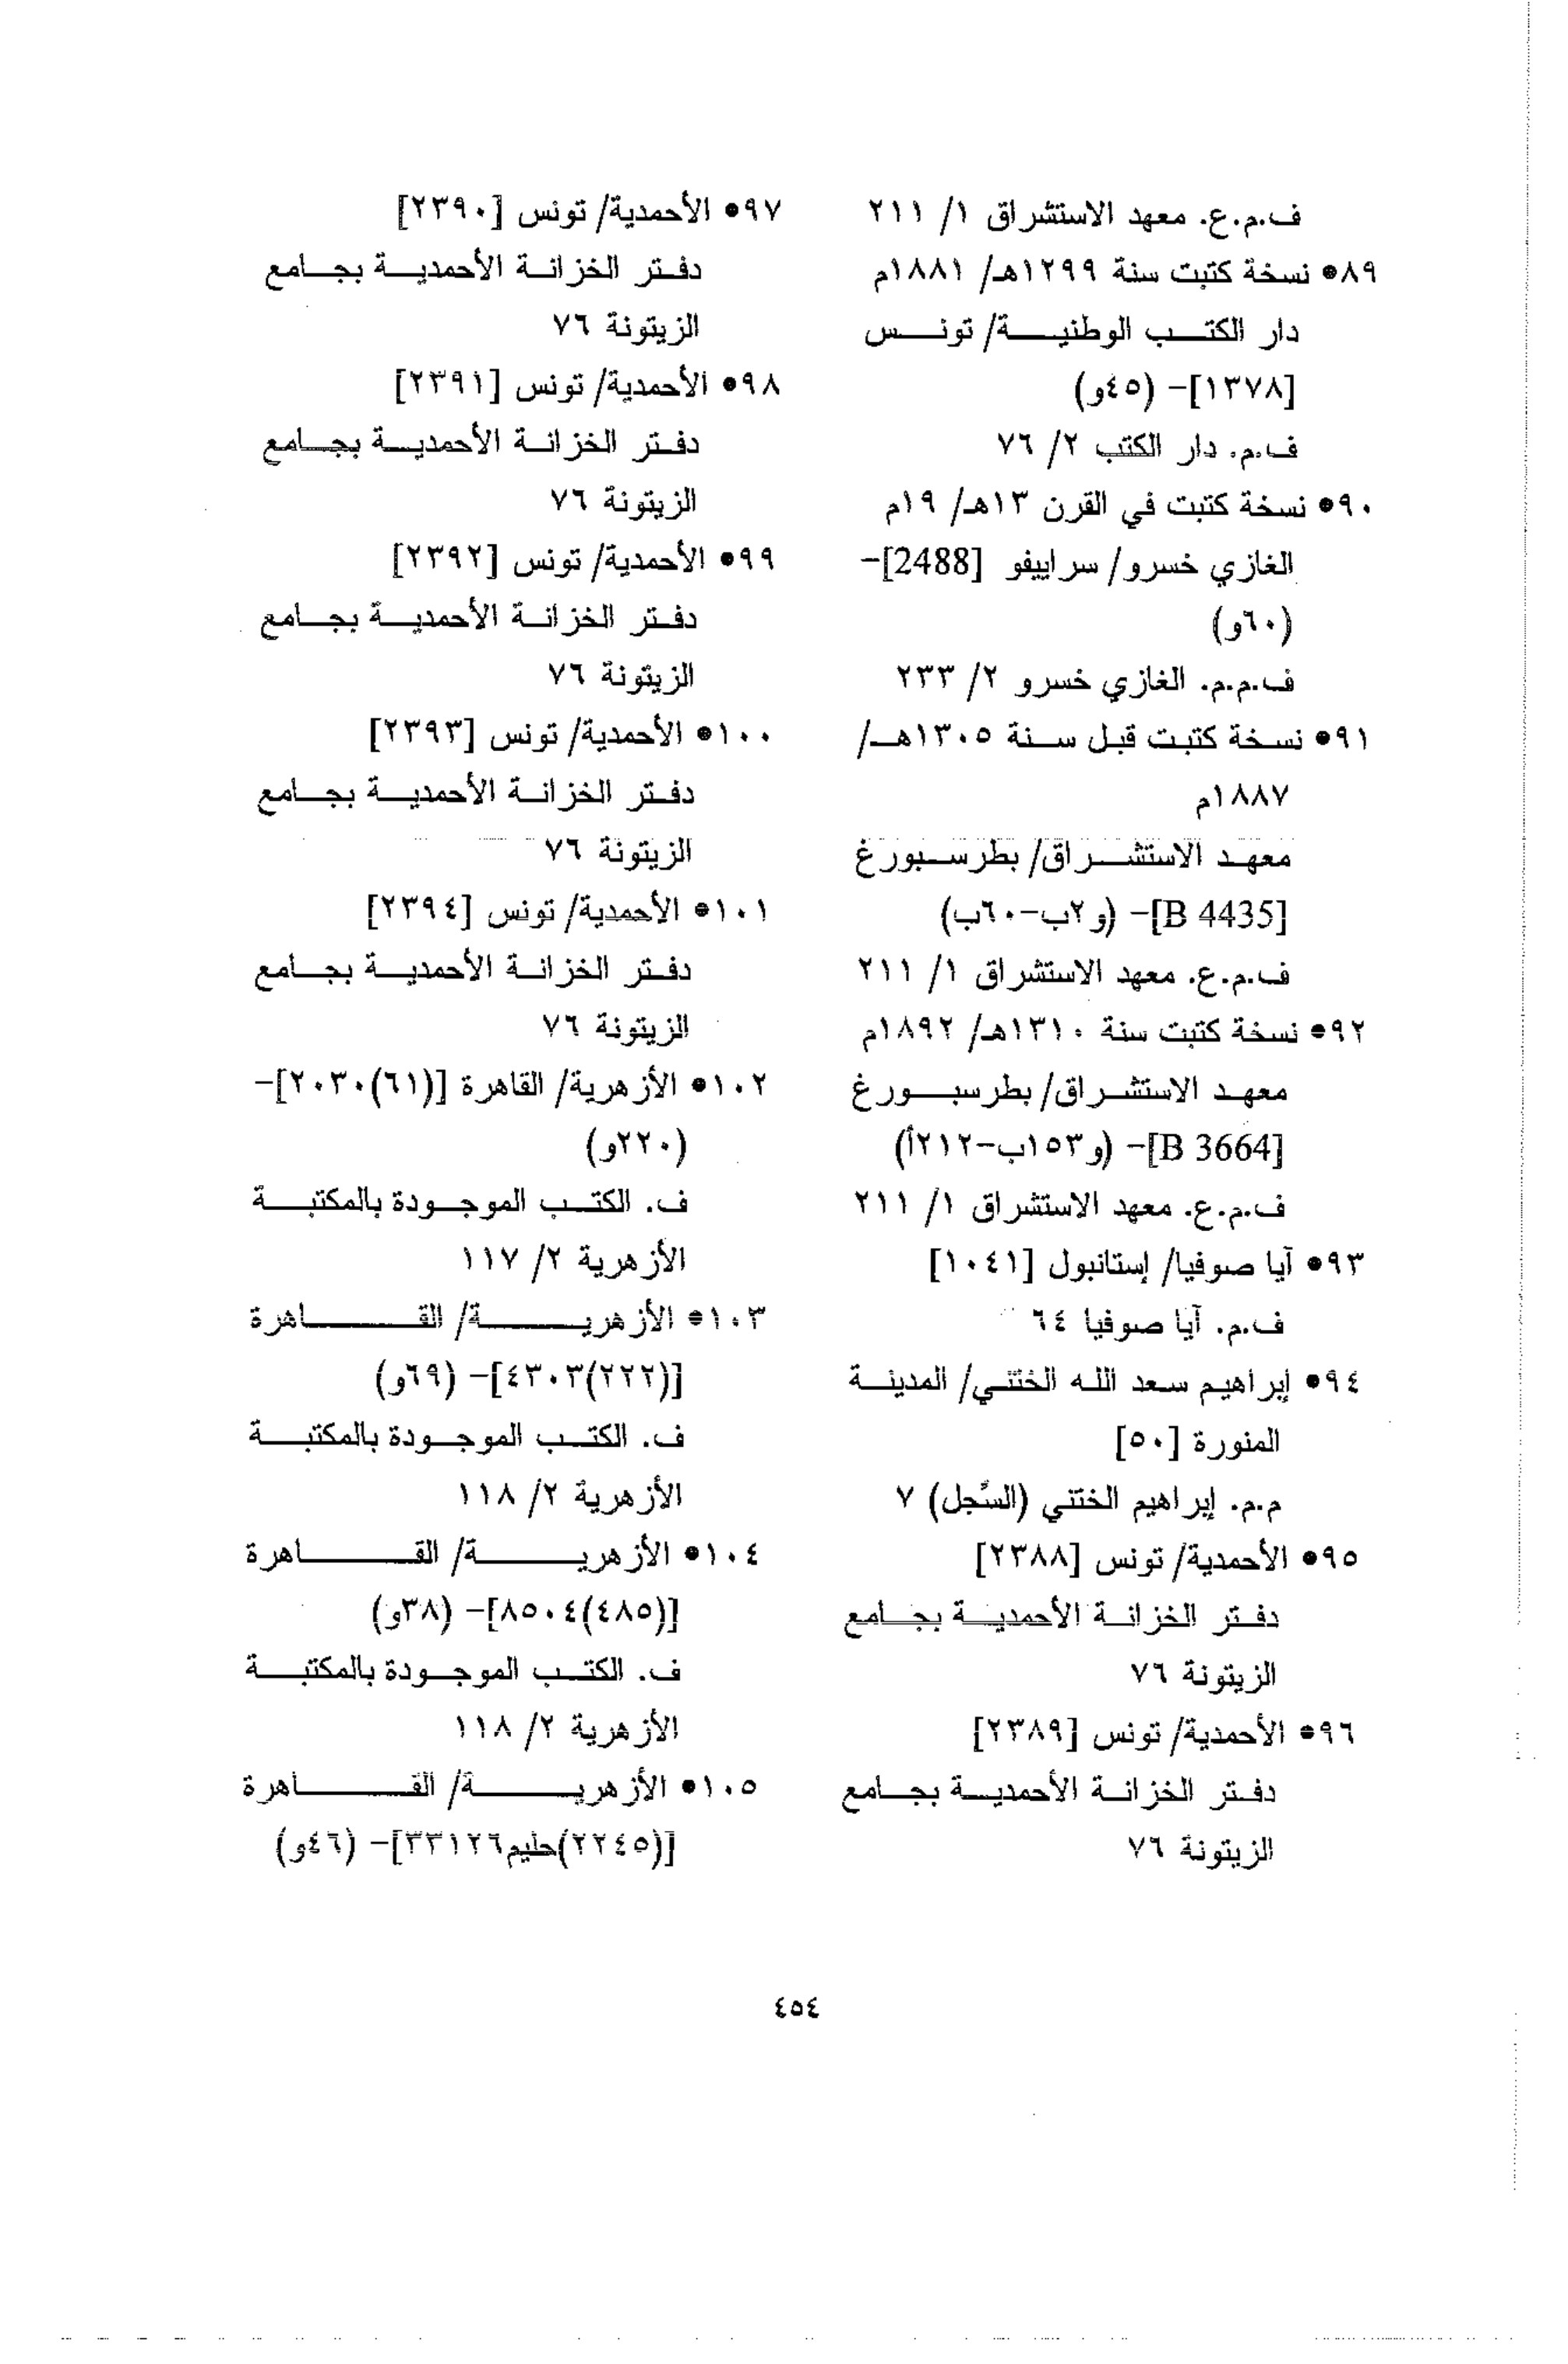 ف.م.ع. معهد الاستشراق ١/ ٢١١
٨٩● نسخة كتبت سنة ١٢٩٩هـ/ ١٨٨١م
دار الكتب الوطنية/ تونس
[١٣٧٨]- (٤٥و)
ف.م. دار الكتب ٢/ ٧٦
٩٠● نسخة كتبت في القرن ١٣هـ/ ١٩م
الغازي خسرو/ سراييفو [2488]-
(٦٠و)
ف.م.م. الغازي خسرو ٢/ ٢٣٣
٩١● نسخة كتبت قبل سنة ١٣٠٥هـ/
١٨٨٧م
معهد الاستشراق/ بطرسبورغ
[B 4435]- (و٢ب-٦٠ب)
ف.م.ع. معهد الاستشراق ١/ ٢١١
٩٢● نسخة كتبت سنة ١٣١٠هـ/ ١٨٩٢م
معهد الاستشراق/ بطرسبورغ
[B 3664]- (و١٥٣ب-٢١٢أ)
ف.م.ع. معهد الاستشراق ١/ ٢١١
٩٣● آيا صوفيا/ إستانبول [١٠٤١]
ف.م. آيا صوفيا ٦٤
٩٤● إبراهيم سعد الله الختني/ المدينة
المنورة [٥٠]
م.م. إبراهيم الختني (السِّجل) ٧
٩٥● الأحمدية/ تونس [٢٣٨٨]
دفتر الخزانة الأحمدية بجامع
الزيتونة ٧٦
٩٦● الأحمدية/ تونس [٢٣٨٩]
دفتر الخزانة الأحمدية بجامع
الزيتونة ٧٦
٩٧● الأحمدية/ تونس [٢٣٩٠]
دفتر الخزانة الأحمدية بجامع
الزيتونة ٧٦
٩٨● الأحمدية/ تونس [٢٣٩١]
دفتر الخزانة الأحمدية بجامع
الزيتونة ٧٦
٩٩● الأحمدية/ تونس [٢٣٩٢]
دفتر الخزانة الأحمدية بجامع
الزيتونة ٧٦
١٠٠● الأحمدية/ تونس [٢٣٩٣]
دفتر الخزانة الأحمدية بجامع
الزيتونة ٧٦
١٠١● الأحمدية/ تونس [٢٣٩٤]
دفتر الخزانة الأحمدية بجامع
الزيتونة ٧٦
١٠٢● الأزهرية/ القاهرة [(٦١)٢٠٣٠]-
(٢٢٠و)
ف. الكتب الموجودة بالمكتبة
الأزهرية ٢/ ١١٧
١٠٣● الأزهرية/ القاهرة
[(٢٢٢)٤٣٠٣]- (٦٩و)
ف. الكتب الموجودة بالمكتبة
الأزهرية ٢/ ١١٨
١٠٤● الأزهرية/ القاهرة
[(٤٨٥)٨٥٠٤]- (٣٨و)
ف. الكتب الموجودة بالمكتبة
الأزهرية ٢/ ١١٨
١٠٥● الأزهرية/ القاهرة
[(٢٢٤٥)حليم٣٣١٢٦]- (٤٦و)
٤٥٤